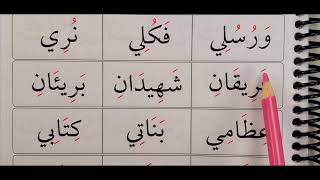 وَرُسُلِي فَكُلِي نُرِي
شَهِيدَانِ بَرِيئَانِ
عِظَامِي بَنَاتِي كِتَابِي